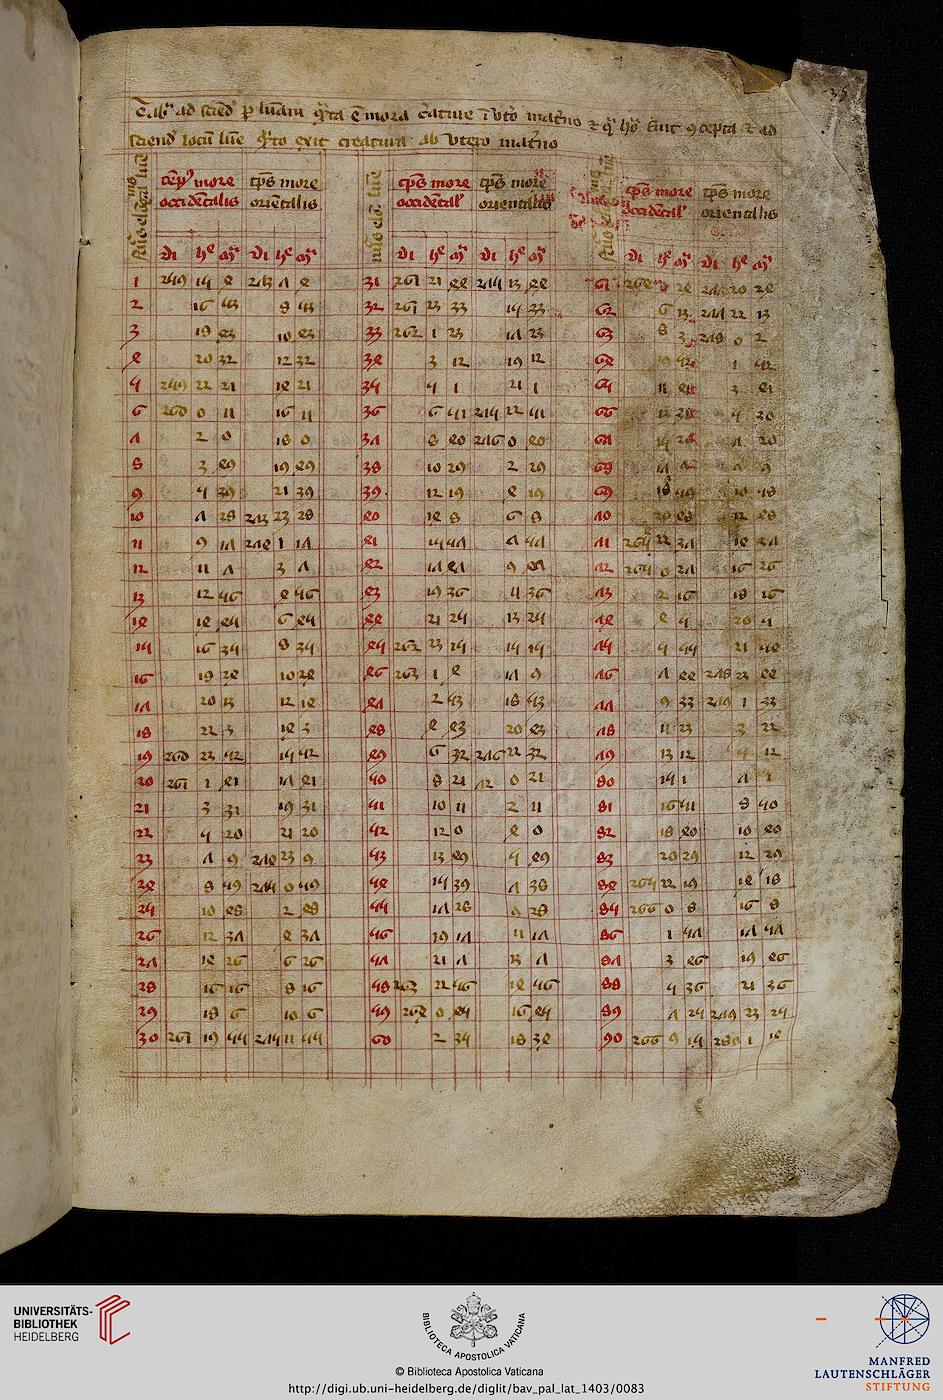 35
Tabla ad sciend per lunam quanta est mora creature in utero materno et qua hora fuit concepta et ad
sciendum locum lune quando exit creatura ab utero materno
temps more occidentalis tps more orientalis tps more occidental tps more orientalis tps more occidental tps more orientalis
di he di he di he di he di he di he
1 259 15 4 273 7 4 31 261 21 44 275 13 44 61 264 24 277 20 24
2 16 53 9 53 32 261 23 33 15 33 62 6 13 277 22 13
3 18 43 10 43 33 262 1 23 17 23 63 8 3 278 0 2
4 20 32 12 32 34 3 12 19 12 64 52 1 52
5 259 22 21 14 21 35 5 1 21 1 65 11 41 3 41
6 260 0 11 16 11 36 6 51 275 22 51 66 13 5 30
7 2 0 18 0 37 8 40 276 0 40 67 15 20 7 20
8 3 49 19 49 38 10 29 2 29 68 17 9 9
9 5 39 21 39 39 12 19 4 19 69 18 10 58
10 7 28 273 23 28 40 14 8 6 8 70 20 48 12 48
11 9 17 274 1 17 41 15 57 7 57 71 22 37 14 37
12 11 7 3 7 42 17 47 9 47 72 265 0 27 16 26
13 12 56 4 56 43 19 36 11 36 73 2 16 18 16
14 14 45 6 45 44 21 25 13 25 74 4 5 20 5
15 16 34 8 34 45 262 23 15 15 15 75 5 55 21 54
16 18 24 10 24 46 263 1 4 17 76 7 44 278 23 44
17 20 13 12 14 47 2 53 18 53 77 9 33 279 1 33
18 22 3 14 3 48 4 43 20 43 78 11 23 3 22
19 260 23 52 15 52 49 6 32 276 22 32 79 13 12 5 12
20 261 1 41 17 41 50 8 21 0 21 80 15 1 7 1
21 3 31 19 31 51 10 11 2 11 81 16 51 8 50
22 5 20 21 20 52 12 0 4 0 82 18 40 10 40
23 7 9 274 23 9 53 13 49 5 49 83 20 29 12 29
24 8 59 275 0 59 54 15 39 7 38 84 265 22 19 14 18
25 10 48 2 48 55 17 28 9 28 85 266 0 8 16 8
26 12 37 4 37 56 19 17 11 17 86 1 57 17 57
27 14 26 6 26 57 21 7 13 7 87 3 46 19 46
28 16 16 8 16 58 263 22 56 14 56 88 5 36 21 36
29 18 6 10 6 59 264 0 45 16 45 89 7 25 279 23 25
30 261 19 55 275 11 55 60 2 35 18 34 90 266 9 15 280 1 14
UNIVERSITÄTS-
BIBLIOTHEK
HEIDELBERG
BIBLIOTECA APOSTOLICA VATICANA
© Biblioteca Apostolica Vaticana
http://digi.ub.uni-heidelberg.de/diglit/bav_pal_lat_1403/0083
MANFRED
LAUTENSCHLÄGER
STIFTUNG